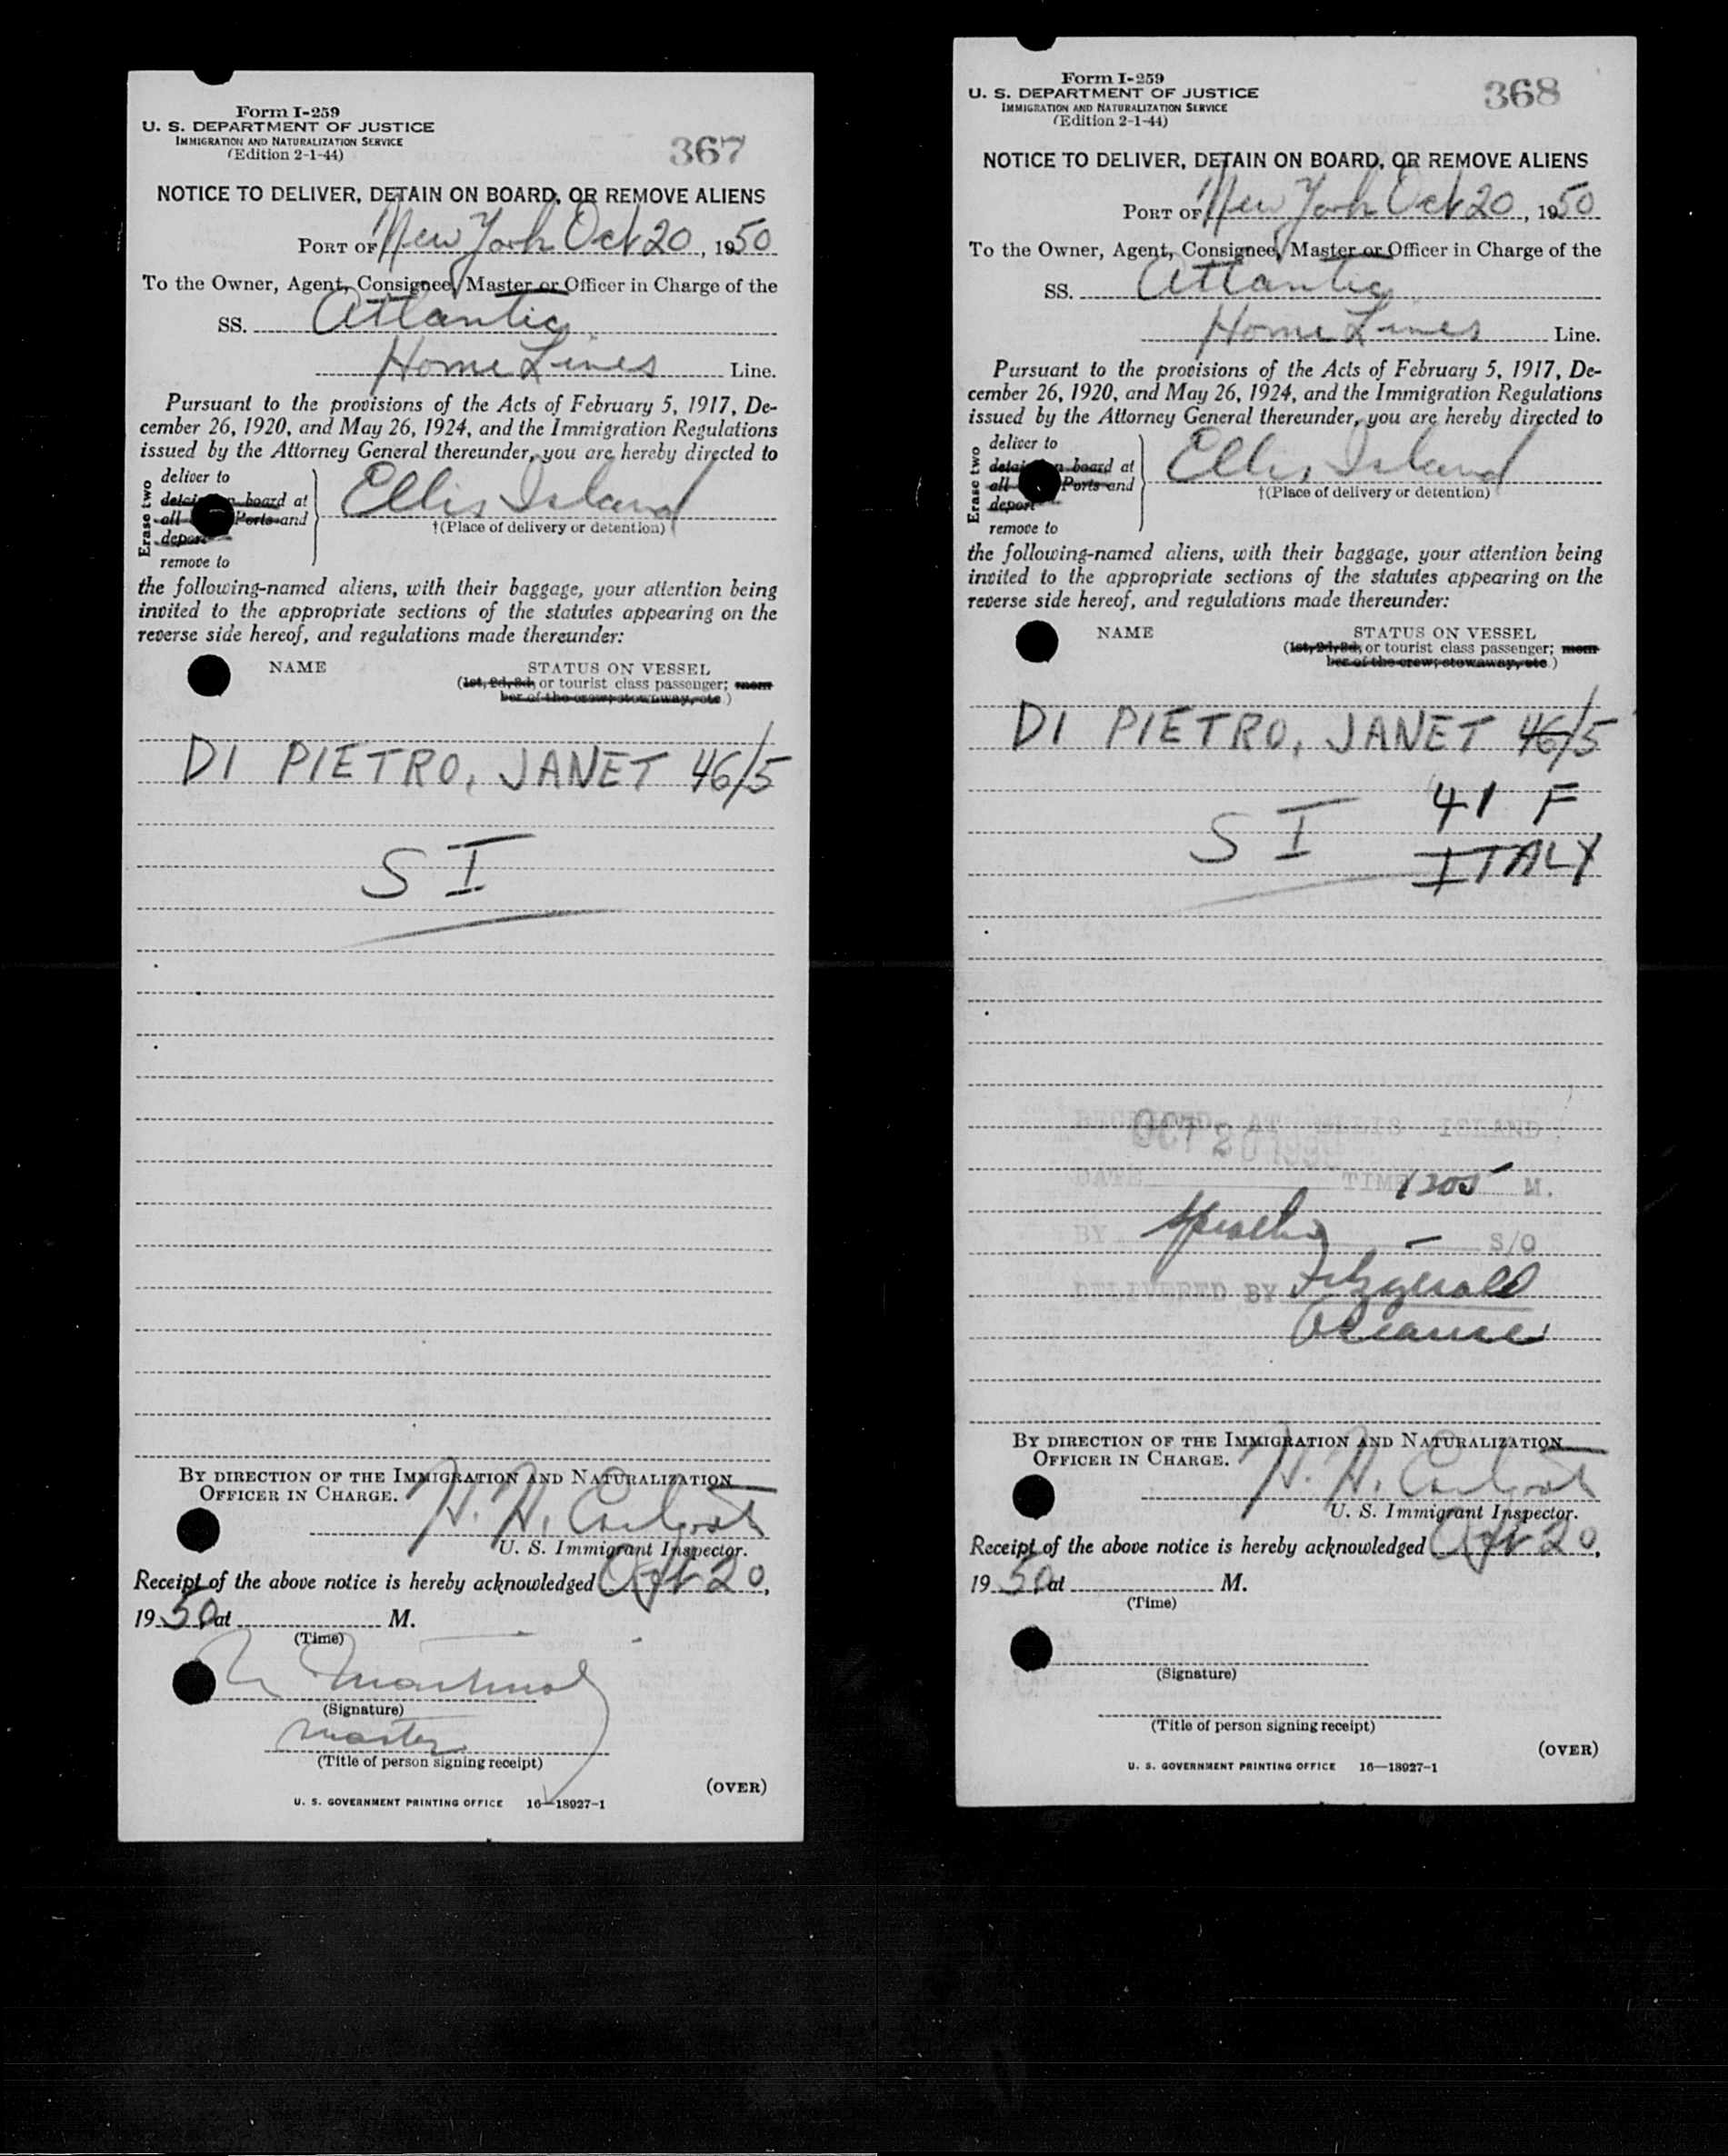 Form I-259
U. S. DEPARTMENT OF JUSTICE
IMMIGRATION AND NATURALIZATION SERVICE
(Edition 2-1-44)
367
NOTICE TO DELIVER, DETAIN ON BOARD, OR REMOVE ALIENS
PORT OF New York Oct 20, 1950
To the Owner, Agent, Consignee, Master or Officer in Charge of the
SS. Atlantic
Home Lines Line.
Pursuant to the provisions of the Acts of February 5, 1917, De-
cember 26, 1920, and May 26, 1924, and the Immigration Regulations
issued by the Attorney General thereunder, you are hereby directed to
Erase two
deliver to
detain on board at
all Ports and
deport
remove to
Ellis Island
†(Place of delivery or detention)
the following-named aliens, with their baggage, your attention being
invited to the appropriate sections of the statutes appearing on the
reverse side hereof, and regulations made thereunder:
NAME
STATUS ON VESSEL
(1st, 2d, 3d, or tourist class passenger; mem-
ber of the crew; stowaway, etc.)
DI PIETRO, JANET 46/5
S I
BY DIRECTION OF THE IMMIGRATION AND NATURALIZATION
OFFICER IN CHARGE.
H. H.
U. S. Immigrant Inspector.
Receipt of the above notice is hereby acknowledged 20,
1950 at M.
(Time)
(Signature)
Master
(Title of person signing receipt)
(OVER)
U. S. GOVERNMENT PRINTING OFFICE 16—18027-1
Form I-259
U. S. DEPARTMENT OF JUSTICE
IMMIGRATION AND NATURALIZATION SERVICE
(Edition 2-1-44)
368
NOTICE TO DELIVER, DETAIN ON BOARD, OR REMOVE ALIENS
PORT OF New York Oct 20, 1950
To the Owner, Agent, Consignee, Master or Officer in Charge of the
SS. Atlantic
Home Lines Line.
Pursuant to the provisions of the Acts of February 5, 1917, De-
cember 26, 1920, and May 26, 1924, and the Immigration Regulations
issued by the Attorney General thereunder, you are hereby directed to
Erase two
deliver to
detain on board at
all Ports and
deport
remove to
Ellis Island
†(Place of delivery or detention)
the following-named aliens, with their baggage, your attention being
invited to the appropriate sections of the statutes appearing on the
reverse side hereof, and regulations made thereunder:
NAME
STATUS ON VESSEL
(1st, 2d, 3d, or tourist class passenger; mem-
ber of the crew; stowaway, etc.)
DI PIETRO, JANET 46/5
41 F
S I
ITALY
RECEIVED AT ELLIS ISLAND
OCT 20 1950
DATE TIME 1205 M.
BY S/O
DELIVERED BY Fitzgerald
BY DIRECTION OF THE IMMIGRATION AND NATURALIZATION
OFFICER IN CHARGE.
H. H.
U. S. Immigrant Inspector.
Receipt of the above notice is hereby acknowledged 20,
1950 at M.
(Time)
(Signature)
(Title of person signing receipt)
(OVER)
U. S. GOVERNMENT PRINTING OFFICE 16—18027-1